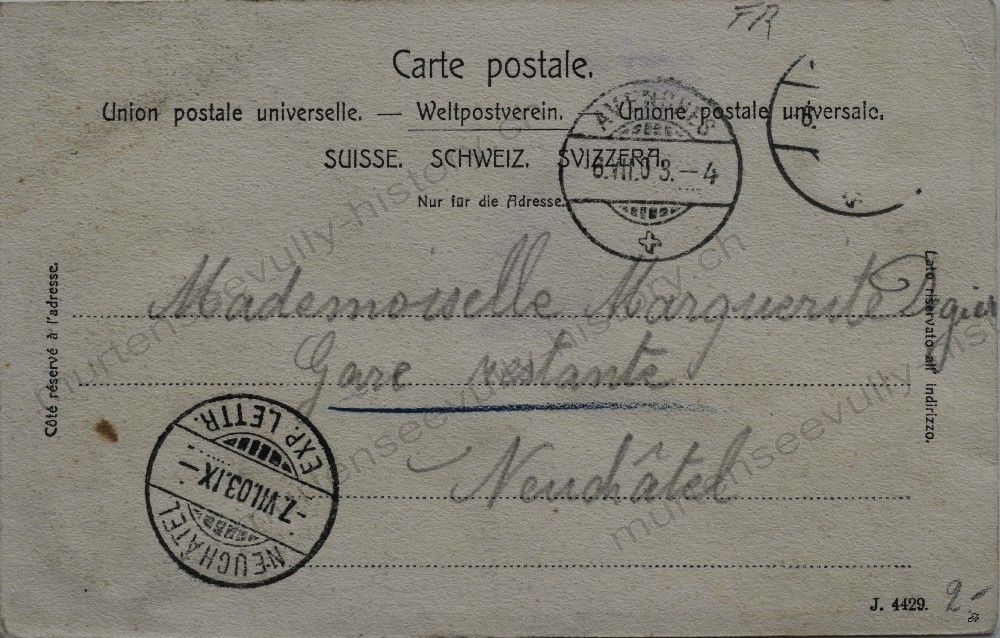 FR
Carte postale.
Union postale universelle. — Weltpostverein. — Unione postale universale.
SUISSE. SCHWEIZ. SVIZZERA.
Nur für die Adresse.
AVENCHES
6.VII.03.–4
6.
Côté réservé à l'adresse.
Lato riservato all' indirizzo.
Mademoiselle Marguerite
Gare restante
Neuchâtel
EXP. LETTR.
-7.VII.03.IX-
NEUCHÂTEL
J. 4429.
2.-
murtenseevully-history.ch
murtenseevully-history.ch
murtenseevully-hist